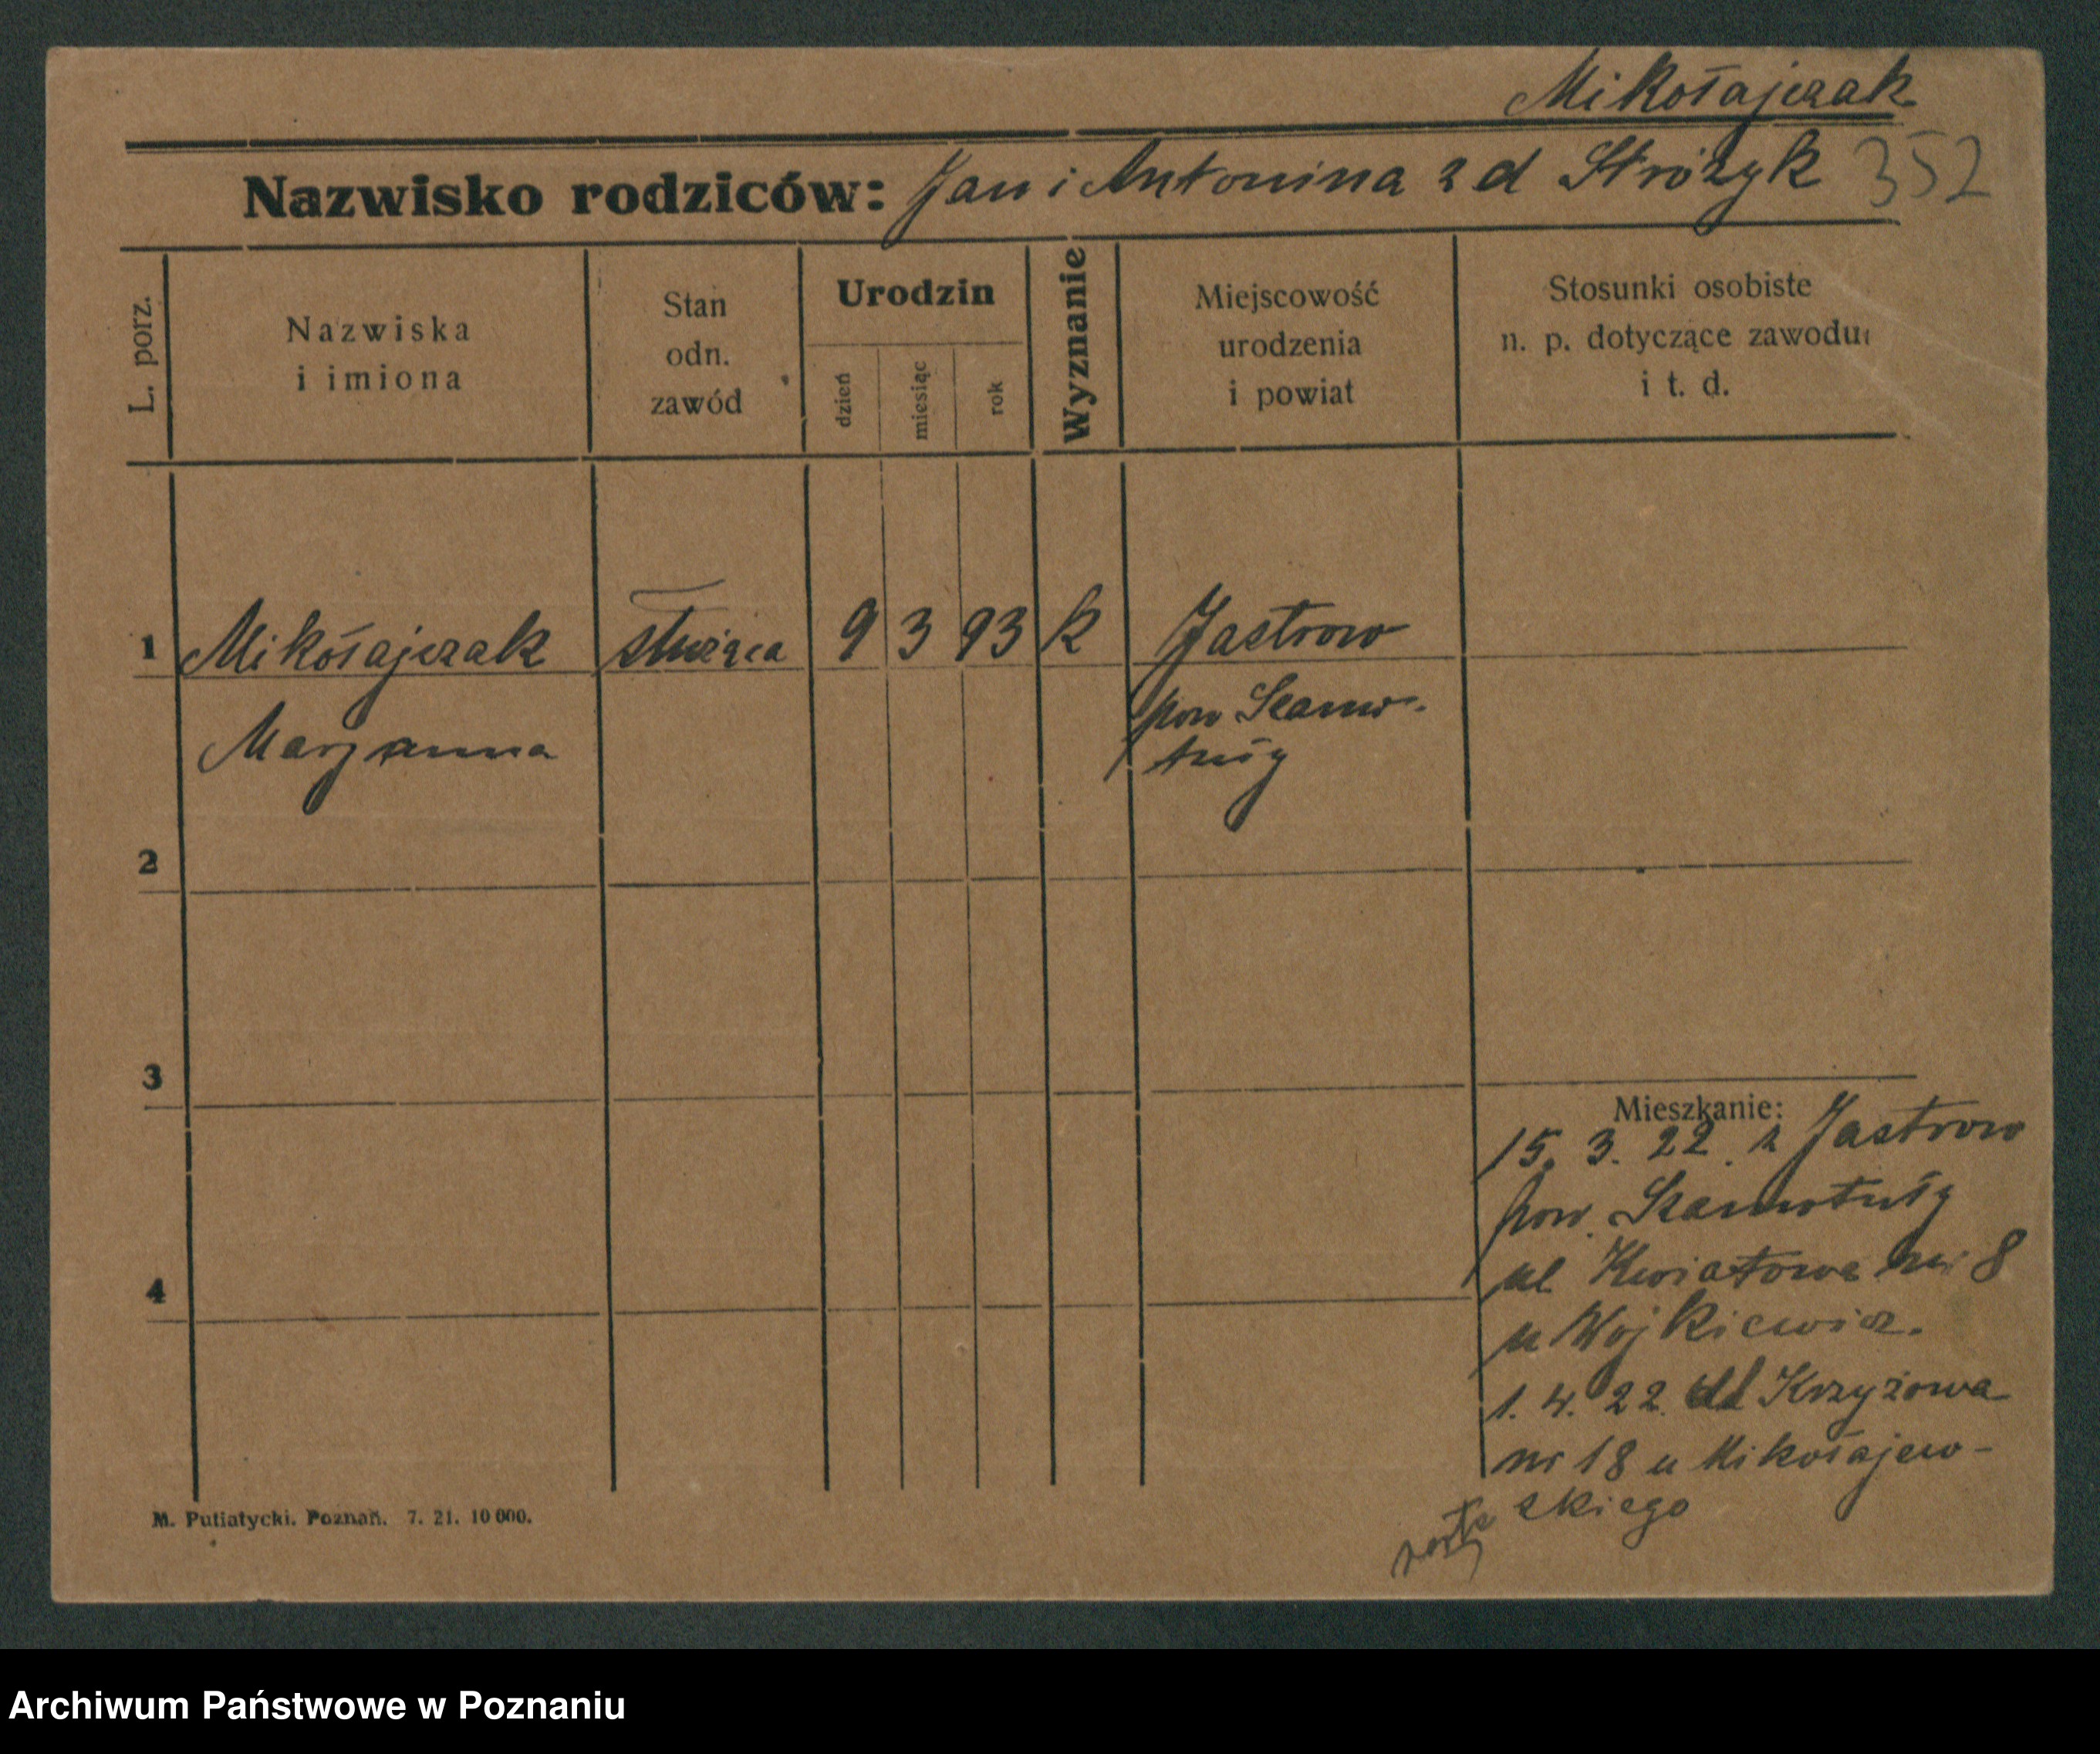 Mikołajczak
Nazwisko rodziców: Jan i Antonina z d Stróżyk 352
L. porz.
Nazwiska
i imiona
Stan
odn.
zawód
Urodzin
dzień
miesiąc
rok
Wyznanie
Miejscowość
urodzenia
i powiat
Stosunki osobiste
n. p. dotyczące zawodu
i t. d.
1 Mikołajczak służąca 9 3 93 k Jastrow
Maryanna
pow Szamo-
tuły
2
3
4
Mieszkanie:
15. 3. 22. z Jastrow
pow. Szamotuły
ul. Kwiatowa nr 8
u Wojkiewicz.
1. 4. 22. ul Krzyżowa
nr 18 u Mikołajew-
skiego
M. Putiatycki. Poznań. 7. 21. 10 000.
Archiwum Państwowe w Poznaniu